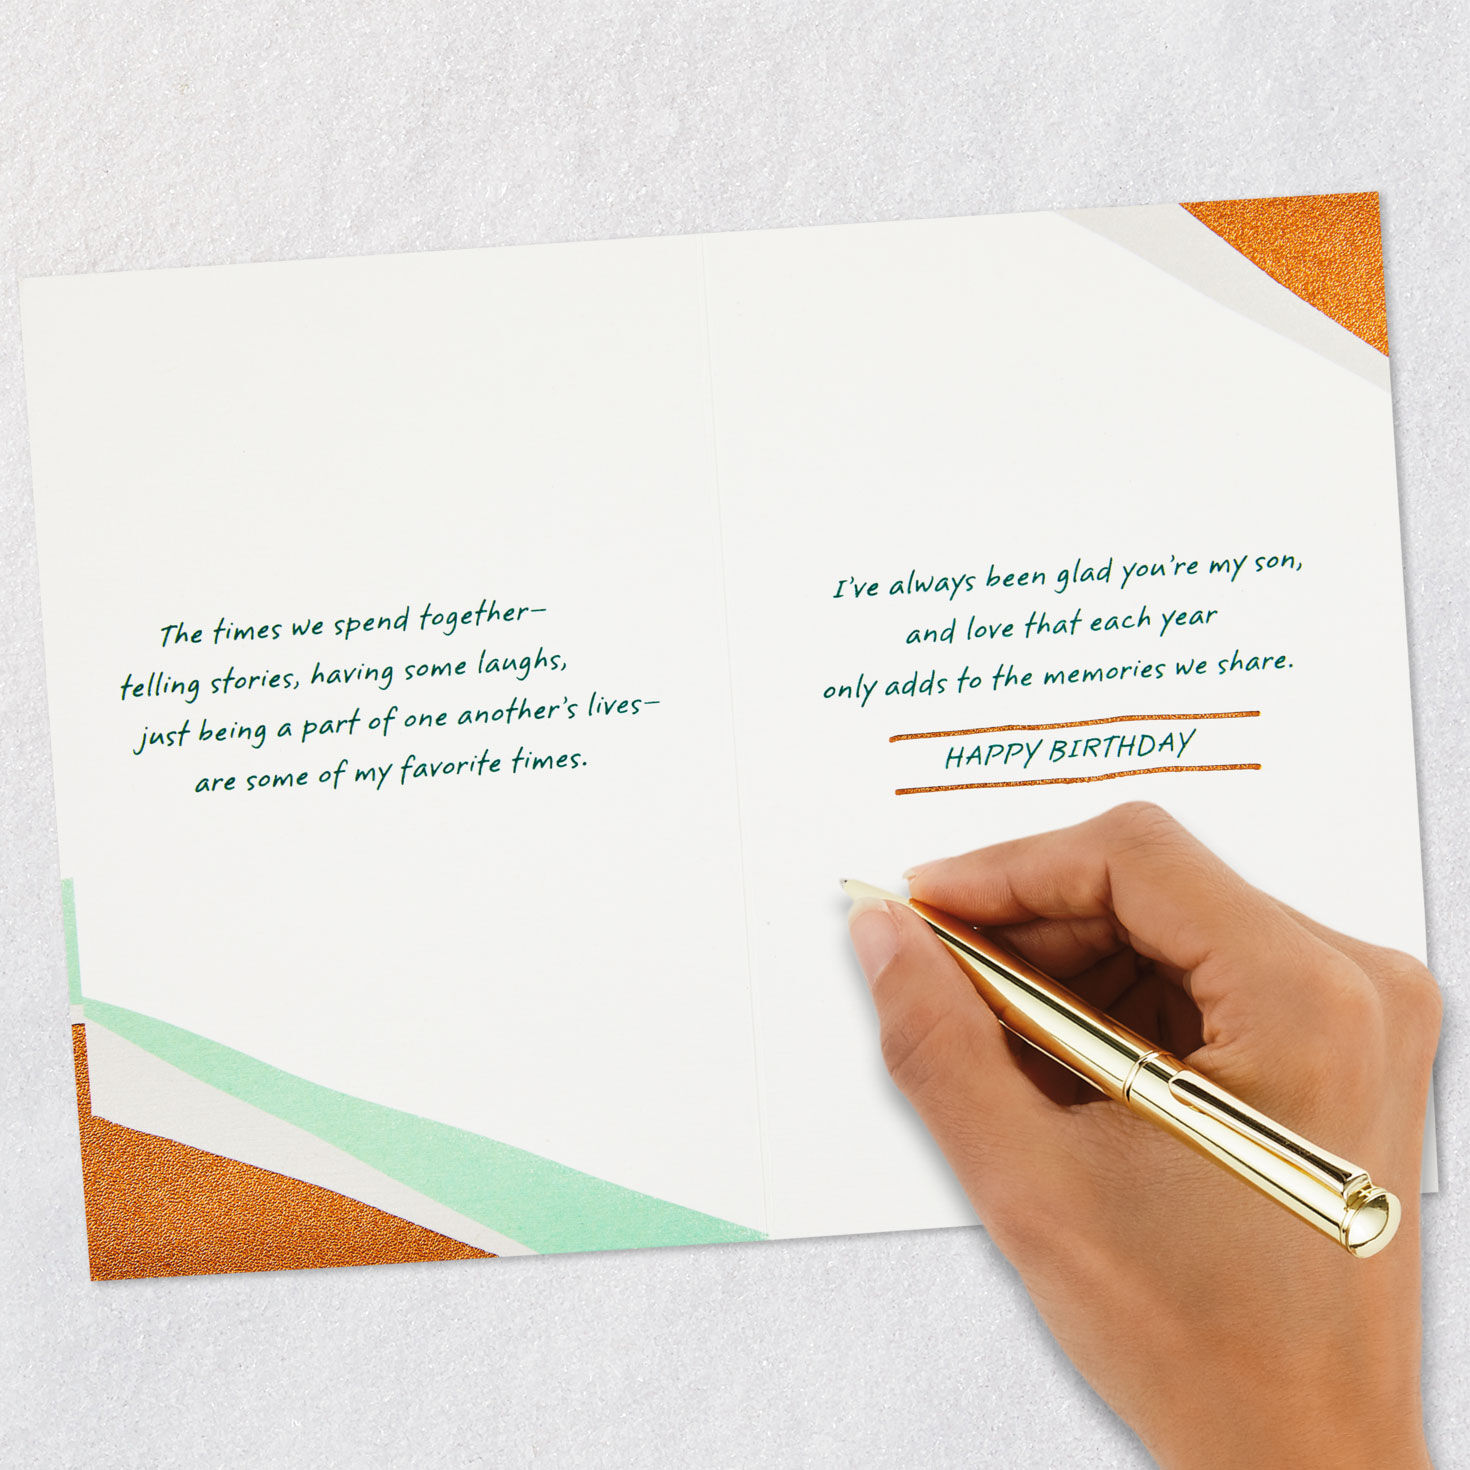 The times we spend together—
telling stories, having some laughs,
just being a part of one another's lives—
are some of my favorite times.
I've always been glad you're my son,
and love that each year
only adds to the memories we share.
HAPPY BIRTHDAY